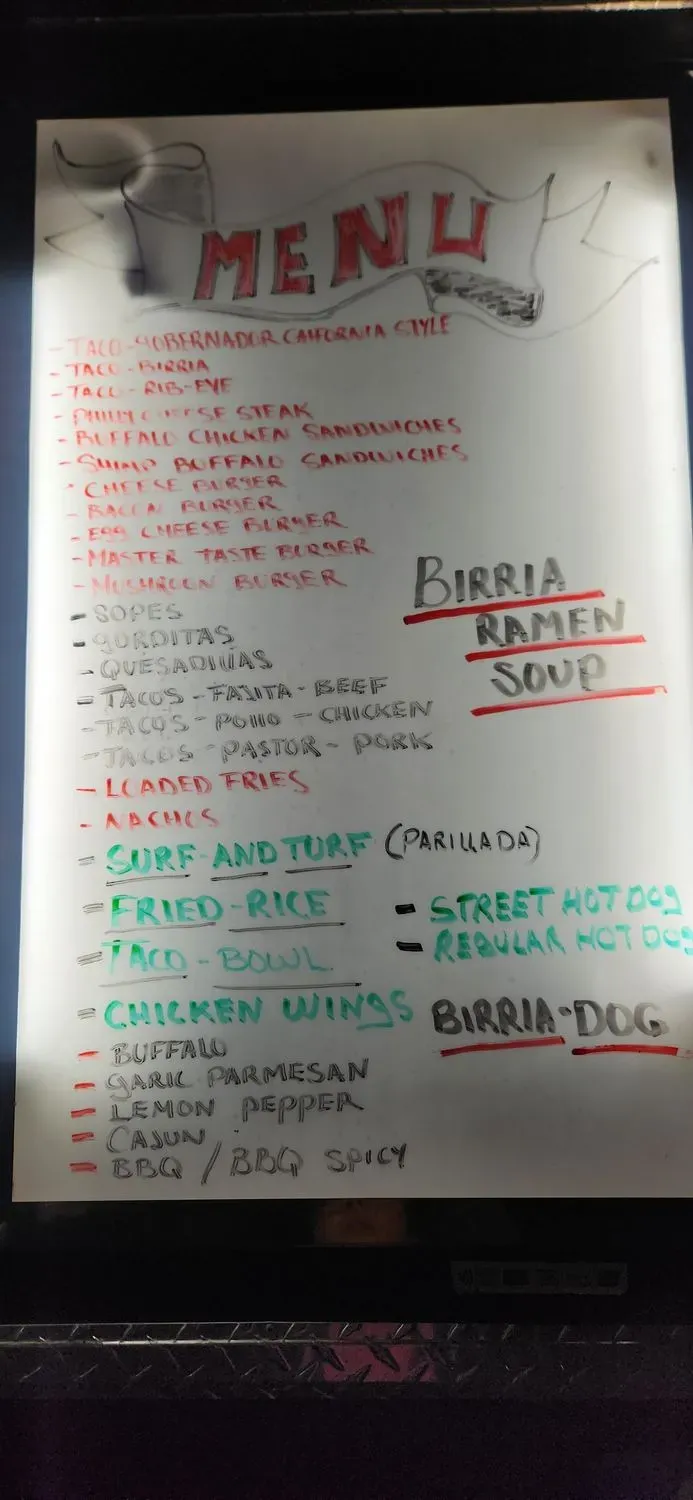 MENU
- TACO-GOBERNADOR CAIFORNIA STYLE
- TACO-BIRRIA
- TACO-RIB-EYE
- PHILLY CHEESE STEAK
- BUFFALO CHICKEN SANDWICHES
- SHIMP BUFFALO SANDWICHES
- CHEESE BURGER
- BACON BURGER
- EGG CHEESE BURGER
- MASTER TASTE BURGER
- MUSHROON BURGER
- SOPES
- GORDITAS
- QUESADILLAS
- TACOS-FAJITA-BEEF
- TACOS-POLLO-CHICKEN
- TACOS-PASTOR-PORK
- LOADED FRIES
- NACHOS
BIRRIA
RAMEN
SOUP
- SURF-AND TURF (PARILLADA)
- FRIED-RICE
- TACO-BOWL
- CHICKEN WINGS
- STREET HOT DOG
- REGULAR HOT DOG
BIRRIA-DOG
- BUFFALO
- GARIC PARMESAN
- LEMON PEPPER
- CAJUN
- BBQ / BBQ SPICY